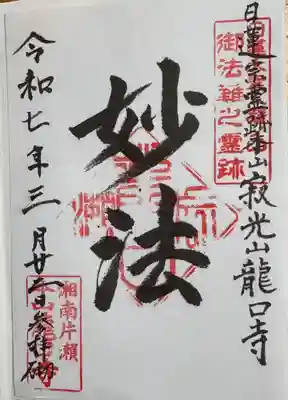 日蓮宗霊跡本山寂光山龍口寺
御法難之霊跡
妙法
令和七年三月廿二日参拝御
湘南片瀬
本山龍口寺